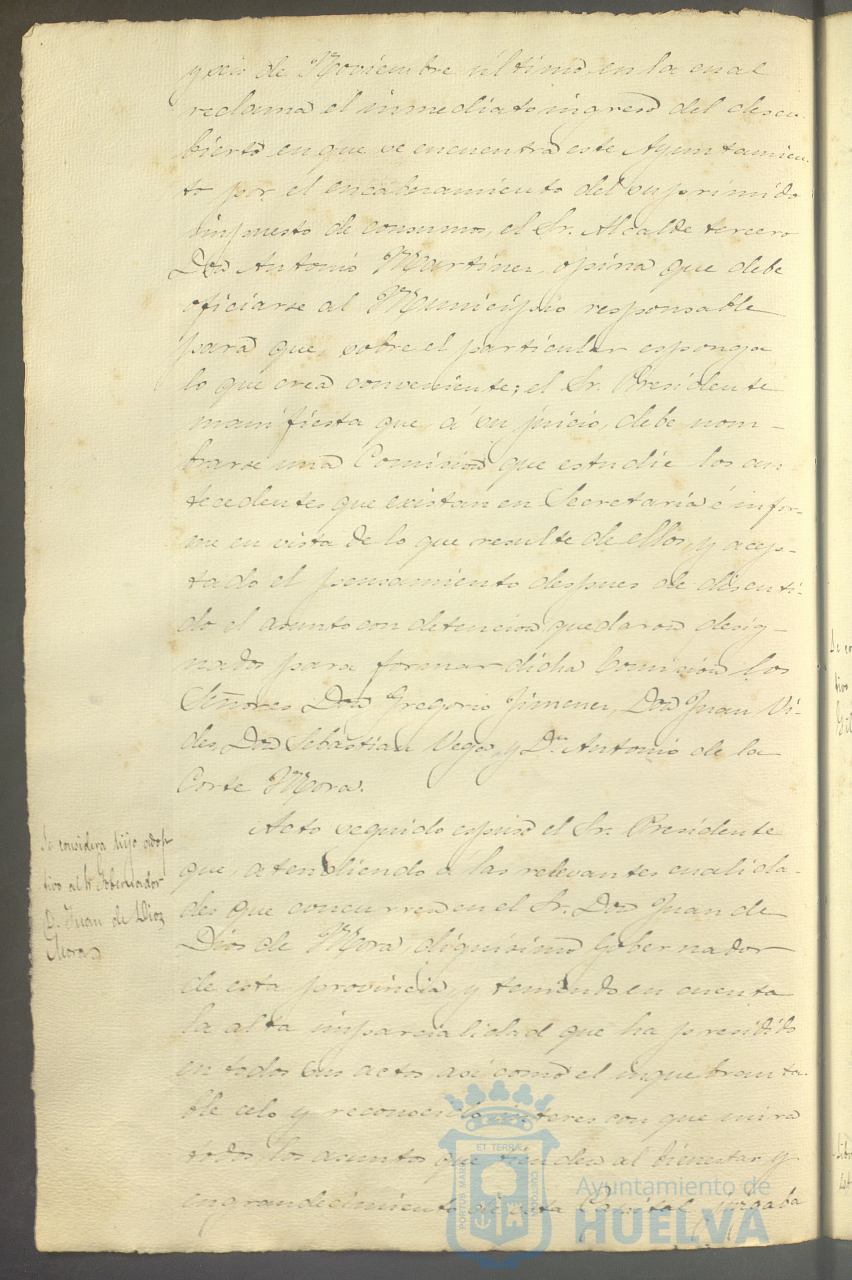 y seis de Noviembre último, en la cual
reclama el inmediato ingreso del descu-
bierto en que se encuentra este Ayuntamien-
to por el encabezamiento del suprimido
impuesto de consumos, el Sr. Alcalde tercero
Don Antonio Martinez, opina que debe
oficiarse al Municipio responsable
para que, sobre el particular esponga
lo que crea conveniente; el Sr. Presidente
manifiesta que, á su juicio, debe nom-
brarse una Comision que estudie los an
tecedentes que existan en Secretaría é infor-
me en vista de lo que resulte de ellos, y acep-
tado el pensamiento despues de discuti-
do el asunto con detencion quedaron desig-
nados para formar dicha Comision los
Señores Don Gregorio Jimenez, Don Juan Vi-
des, Don Sebastian Vega, y Dn. Antonio de la
Corte Mora.
Se considera hijo adop
tivo al Sr Gobernador
D. Juan de Dioz
Mora
Acto seguido espuso el Sr. Presidente
que, atendiendo á las relevantes cualida-
des que concurren en el Sr. Don Juan de
Dios de Mora, dignisimo Gobernador
de esta provincia, y teniendo en cuenta
la alta imparcialidad que ha presidido
en todos sus actos así como el inquebranta-
ble celo y reconocido interes con que mira
todos los asuntos que tienden al bienestar y
engrandecimiento de esta Capital, juzgaba
ET TERRÆ
PORTUS MARIS
CUSTODIA
Ayuntamiento de
HUELVA